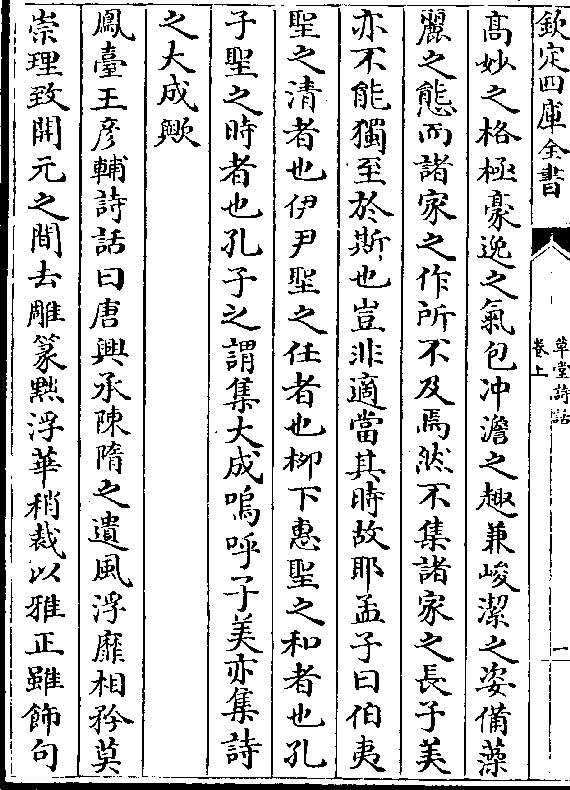 欽定四庫全書
草堂詩話
卷上
一
高妙之格極豪逸之氣包冲澹之趣兼峻潔之姿備藻
麗之態而諸家之作所不及焉然不集諸家之長子美
亦不能獨至於斯也豈非適當其時故耶孟子曰伯夷
聖之清者也伊尹聖之任者也柳下惠聖之和者也孔
子聖之時者也孔子之謂集大成嗚呼子美亦集詩
之大成歟
鳳臺王彦輔詩話曰唐興承陳隋之遺風浮靡相矜莫
崇理致開元之間去雕篆黜浮華稍裁以雅正雖飾句